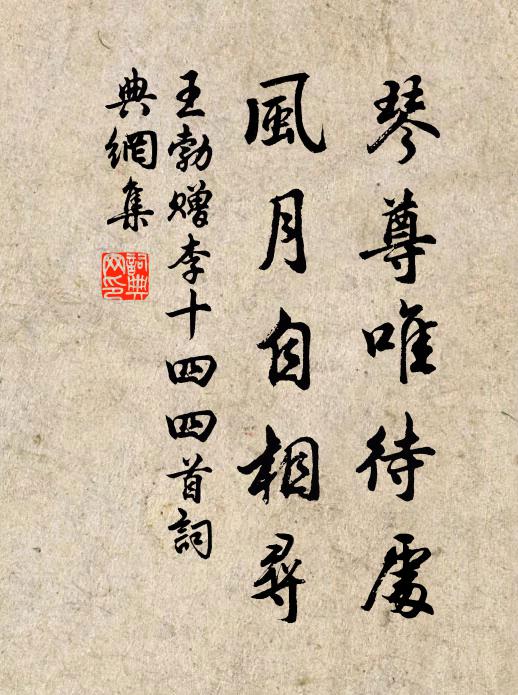 琴尊唯待處
風月自相尋
王勃贈李十四四首詞
典網集
詞典
网印